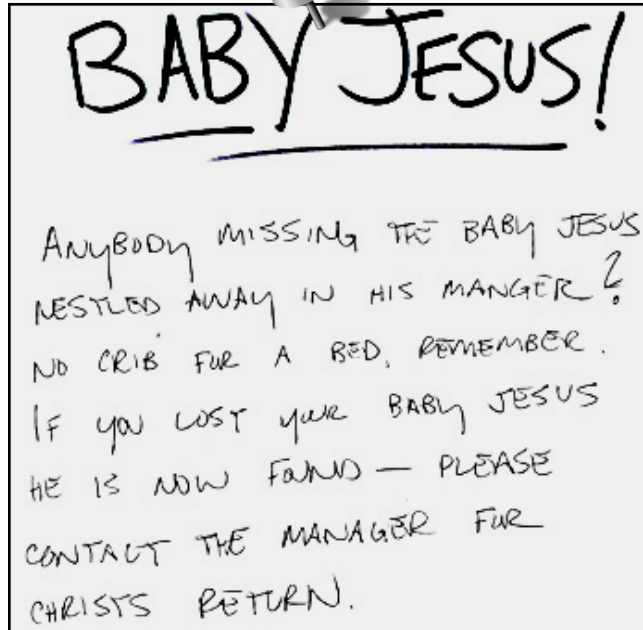 BABY JESUS!
ANYBODY MISSING THE BABY JESUS
NESTLED AWAY IN HIS MANGER?
NO CRIB FUR A BED, REMEMBER.
IF YOU LOST YOUR BABY JESUS
HE IS NOW FOUND — PLEASE
CONTACT THE MANAGER FUR
CHRISTS RETURN.